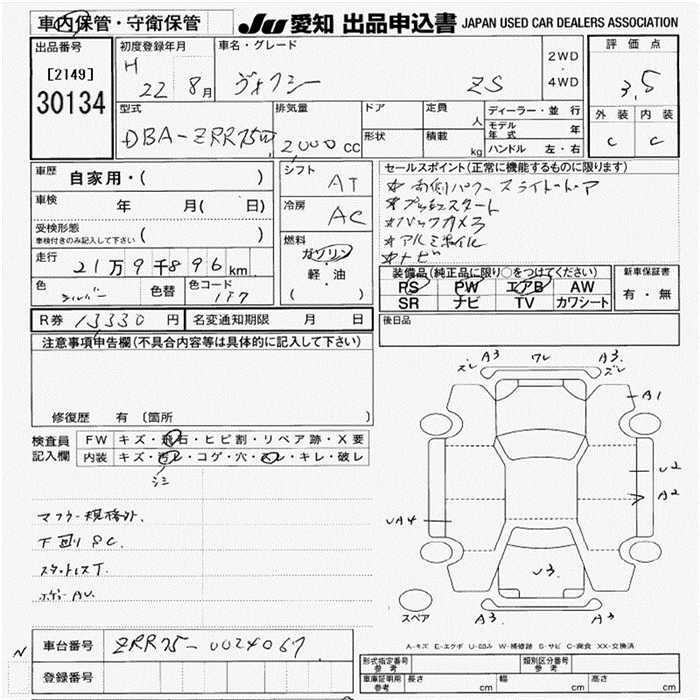 車内保管・守衛保管
JU 愛知 出品申込書 JAPAN USED CAR DEALERS ASSOCIATION
出品番号
[2149]
30134
初度登録年月
H 22 8月
車名・グレード
ヴォクシー ZS
2WD
・
4WD
評価点
3.5
外装 内装
C C
型式
DBA-ZRR75W
排気量
2,000 cc
ドア
形状
定員 人
積載 kg
ディーラー・並行
モデル年式 年
ハンドル 左・右
車歴 自家用・( )
車検 年 月( 日)
受検形態
車検付きのみ記入して下さい ( )
走行
21万9千896km
色 シルバー
色替
色コード 1F7
シフト AT
冷房 AC
燃料
ガソリン
・
軽・油
( )
セールスポイント(正常に機能するものに限ります)
* 両側パワースライドドア
* プッシュスタート
* バックカメラ
* アルミホイル
* ナビ
装備品(純正品に限り○をつけてください)
PS PW エアB AW
SR ナビ TV カワシート
新車保証書
有・無
R券 13,330円
名変通知期限 月 日
後日品
注意事項申告欄(不具合内容等は具体的に記入して下さい)
修復歴 有 〔箇所 〕
検査員
記入欄
FW キズ・飛石・ヒビ割・リペア跡・X要
内装 キズ・汚レ・コゲ・穴・スレ・キレ・破レ
シミ
マフラー規格外.
下廻りSC.
スタットレスT.
A3 ワレ A3.
ズレ ズレ
A1
U2
A2
UA4
U3.
A3 A3.
スペア
A-キズ E-エクボ U-凹み W-補修跡 S-サビ C-腐食 XX-交換済
N
車台番号 ZRR75-0024067
登録番号
形式指定番号
参考
類別区分番号
参考
車庫証明用
参考
長さ cm 幅 cm 高さ cm